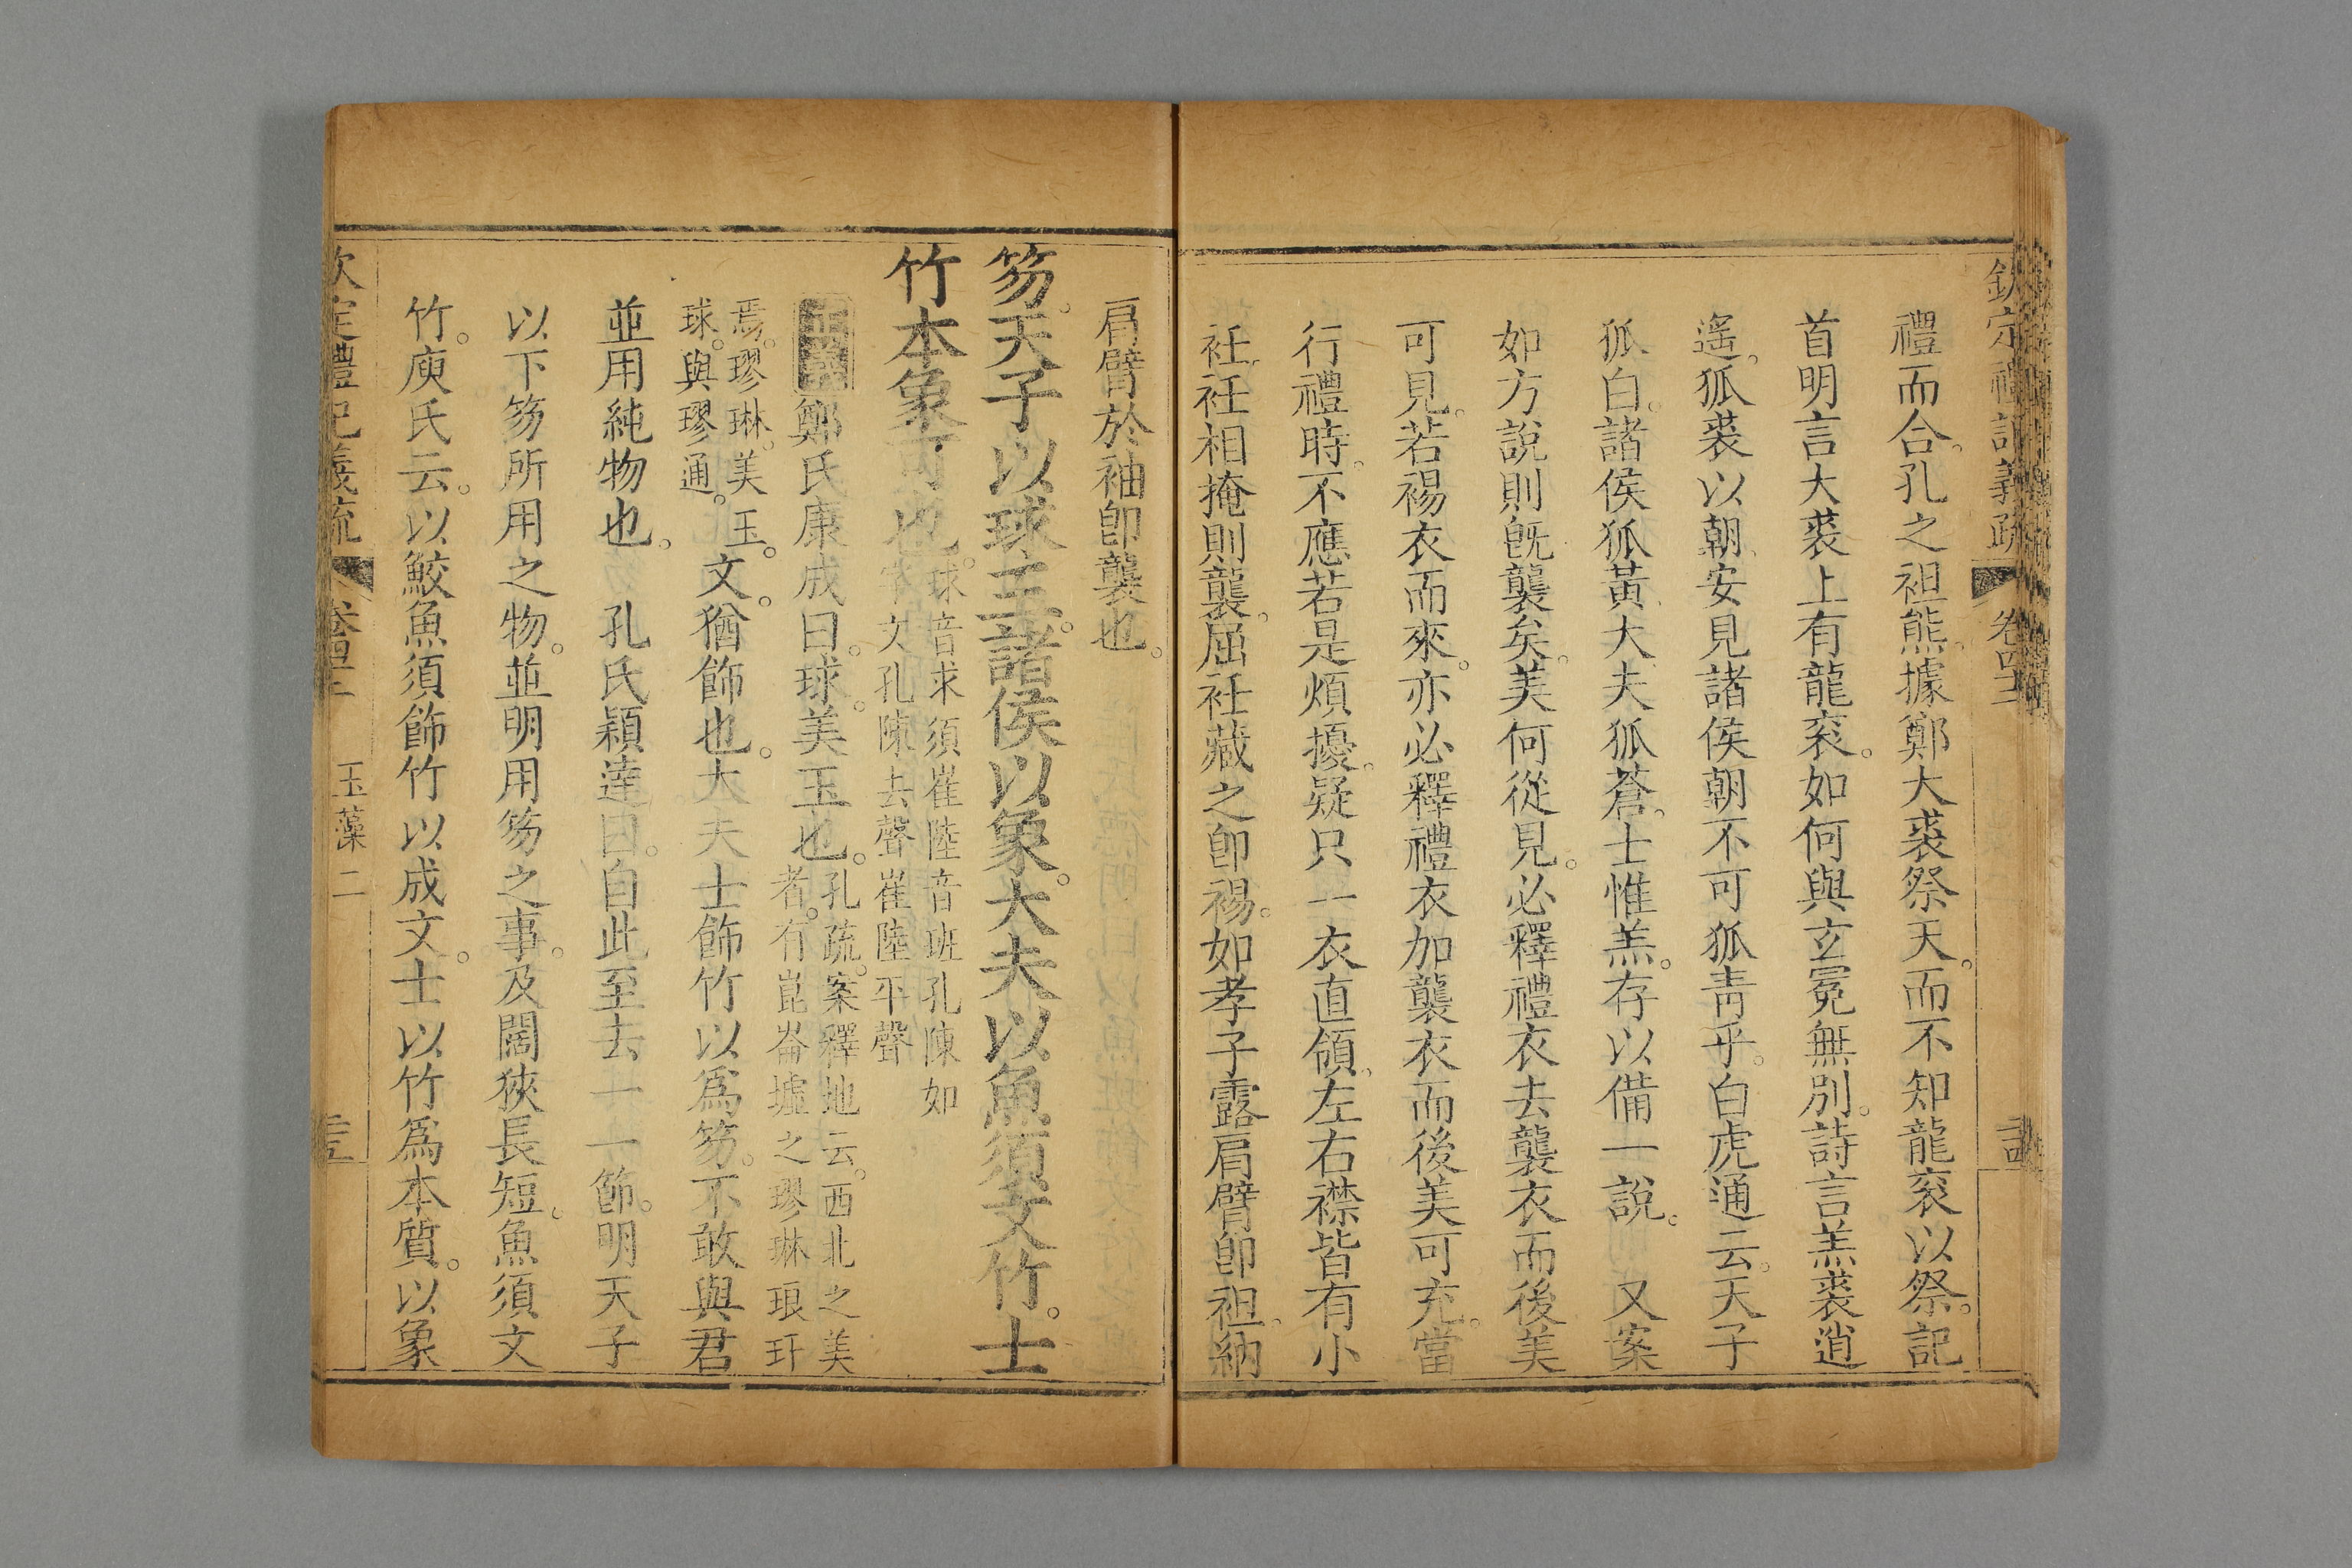 欽定禮記義疏 卷四十二
禮而合。孔之袒熊。據鄭大裘祭天。而不知龍衮以祭。記
首明言大裘上有龍衮。如何與玄冕無別。詩言羔裘逍
遙。狐裘以朝、安見諸侯朝不可狐靑乎。白虎通云。天子
狐白。諸侯狐黃、大夫狐蒼。士惟羔。存以備一說。 又案
如方說則旣襲矣。美何從見。必釋禮衣去襲衣而後美
可見。若裼衣而來。亦必釋禮衣加襲衣而後美可充。當
行禮時。不應若是煩擾。疑只一衣直領、左右襟皆有小
衽。衽相掩則襲。屈衽藏之卽裼。如孝子露肩臂卽袒。納
肩臂於袖卽襲也。
笏。天子以球玉。諸侯以象。大夫以魚須文竹。士
竹本象可也。球音求須崔陸音班孔陳如
字文孔陳去聲崔陸平聲
正義 鄭氏康成曰。球。美玉也。孔疏。案釋地云。西北之美
者。有崑崙墟之璆琳琅玕
焉。璆琳。美玉。
球。與璆通。
文。猶飾也。大夫士飾竹以爲笏。不敢與君
並用純物也。 孔氏穎達曰。自此至去一一節。明天子
以下笏所用之物。並明用笏之事。及闊狹長短。魚須文
竹。庾氏云。以鮫魚須飾竹以成文。士以竹爲本質。以象
欽定禮記義疏 卷四十二 玉藻二